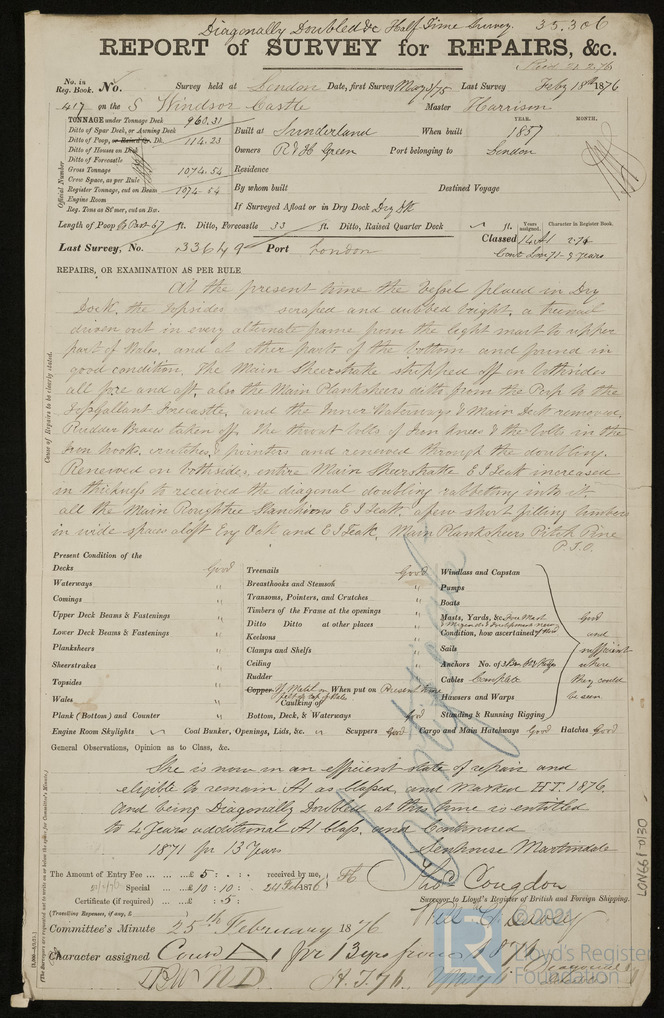 Diagonally Doubled &c Half Time Survey. 35.306
REPORT of SURVEY for REPAIRS, &c.
No. in Reg. Book. No. Survey held at London Date, first Survey May 3/75 Last Survey Feby 18th 1876
417 on the S Windsor Castle Master Harrison
TONNAGE under Tonnage Deck 960.31
Ditto of Spar Deck, or Awning Deck
Ditto of Poop, or Raised Qr. Dk. 114.23
Ditto of Houses on Deck
Ditto of Forecastle
Gross Tonnage 1074.54
Crew Space, as per Rule
Register Tonnage, cut on Beam 1074.54
Engine Room
Reg. Tons as St'mer, cut on Bm.
Official Number
YEAR. MONTH.
Built at Sunderland When built 1857
Owners R & H Green Port belonging to London
Residence
By whom built Destined Voyage
If Surveyed Afloat or in Dry Dock Dry Dk
Length of Poop 67 ft. Ditto, Forecastle 33 ft. Ditto, Raised Quarter Deck ft.
Years assigned. Character in Register Book.
Last Survey, No. 33649 Port London Classed 14 A1 2.74
Cont. 71-9 years
REPAIRS, OR EXAMINATION AS PER RULE
At the present time the Vessel placed in Dry
Dock, the topsides scraped and dubbed bright, a treenail
driven out in every alternate frame from the light mark to upper
part of Wales, and at other parts of the bottom and found in
good condition. The Main Sheerstrake stripped off on bothsides
all fore and aft, also the Main Planksheers ditto from the Poop to the
Topgallant Forecastle, and the Inner Waterways & Main Deck removed,
Rudder Braces taken off. The throat bolts of Iron Knees & the bolts in the
Iron hooks, crutches, & pointers and renewed through the doubling.
Renewed on bothsides, entire Main Sheerstrake E I Teak increased
in thickness to received the diagonal doubling rabbetting into it,
all the Main Roughtree Stanchions E I Teak, a few short filling timbers
in wide spaces aloft Eng Oak and E I Teak, Main Planksheers Pitch Pine
P.T.O.
Cause of Repairs to be clearly stated.
Present Condition of the
Decks Good
Waterways "
Comings "
Upper Deck Beams & Fastenings "
Lower Deck Beams & Fastenings "
Planksheers "
Sheerstrakes "
Topsides "
Wales "
Plank (Bottom) and Counter "
Treenails Good
Breasthooks and Stemson "
Transoms, Pointers, and Crutches "
Timbers of the Frame at the openings "
Ditto Ditto at other places "
Keelsons "
Clamps and Shelfs "
Ceiling "
Rudder "
Copper Y. Metal When put on Present time
Caulking of
Bottom, Deck, & Waterways Good
Windlass and Capstan
Pumps
Boats
Masts, Yards, &c.
Condition, how ascertained
Sails
Anchors No. of
Cables Complete
Hawsers and Warps
Standing & Running Rigging
Good
and
sufficient
where
they could
be seen
Engine Room Skylights Coal Bunker, Openings, Lids, &c. Scuppers Good Cargo and Main Hatchways Good Hatches Good
General Observations, Opinion as to Class, &c.
She is now in an efficient state of repair and
eligible to remain A1 as Classed, and Marked H.T. 1876,
and being Diagonally Doubled at this time is entitled
to 4 Years additional A1 Class, and Continued
1871 for 13 Years
Senhouse Martindale
The Amount of Entry Fee ... £ 5 : : received by me,
Special ... £ 10 : 10 : 24 Feb 1876
Certificate (if required) ... £ : 5 :
(Travelling Expenses, if any, £
Thos Congdon
Surveyor to Lloyd's Register of British and Foreign Shipping.
Committee's Minute 25th February 1876
Character assigned Contd A1 for 13 yrs from 1871
H.T. 76
LON661-0130
© 2021
LR
Lloyd's Register
Foundation